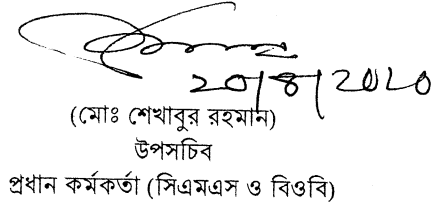 ২০/৪/২০২০
(মোঃ শেখাবুর রহমান)
উপসচিব
প্রধান কর্মকর্তা (সিএমএস ও বিওবি)